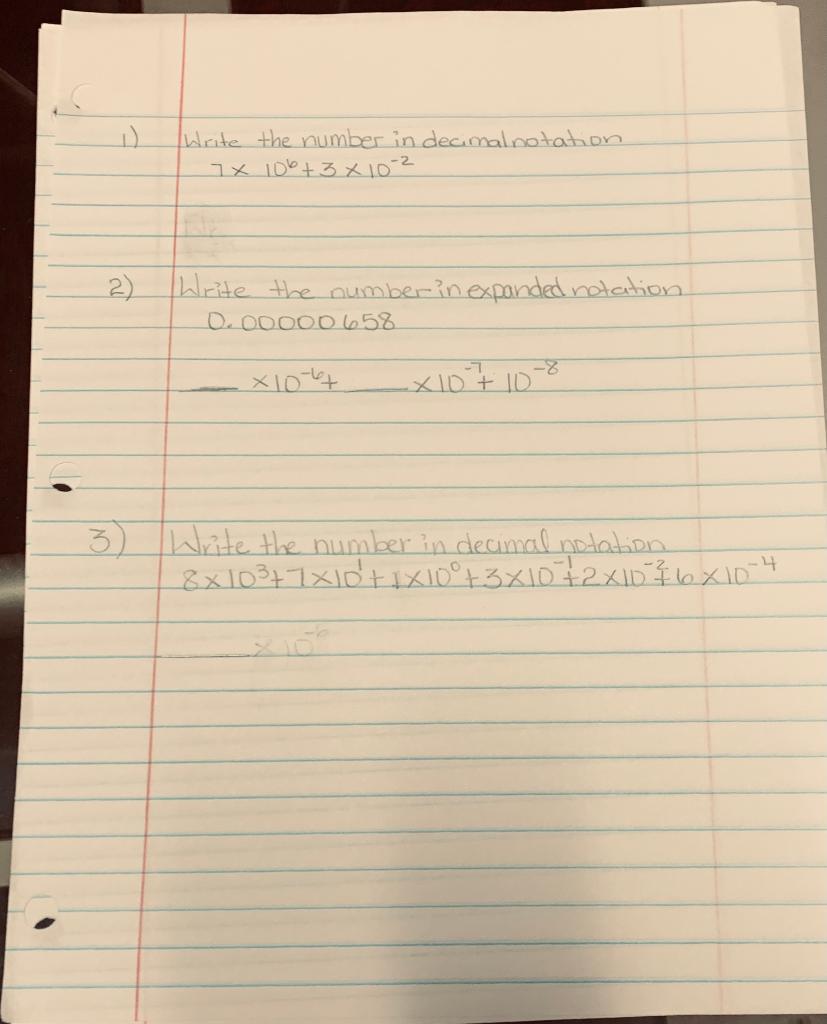 1) Write the number in decimal notation
7 × 10⁶ + 3 × 10⁻²
2) Write the number in expanded notation
0.00000658
___ ×10⁻⁶ + ___ ×10⁻⁷ + 10⁻⁸
3) Write the number in decimal notation
8×10³ + 7×10¹ + 1×10⁰ + 3×10⁻¹ + 2×10⁻² + 6×10⁻⁴
___ ×10⁻⁶